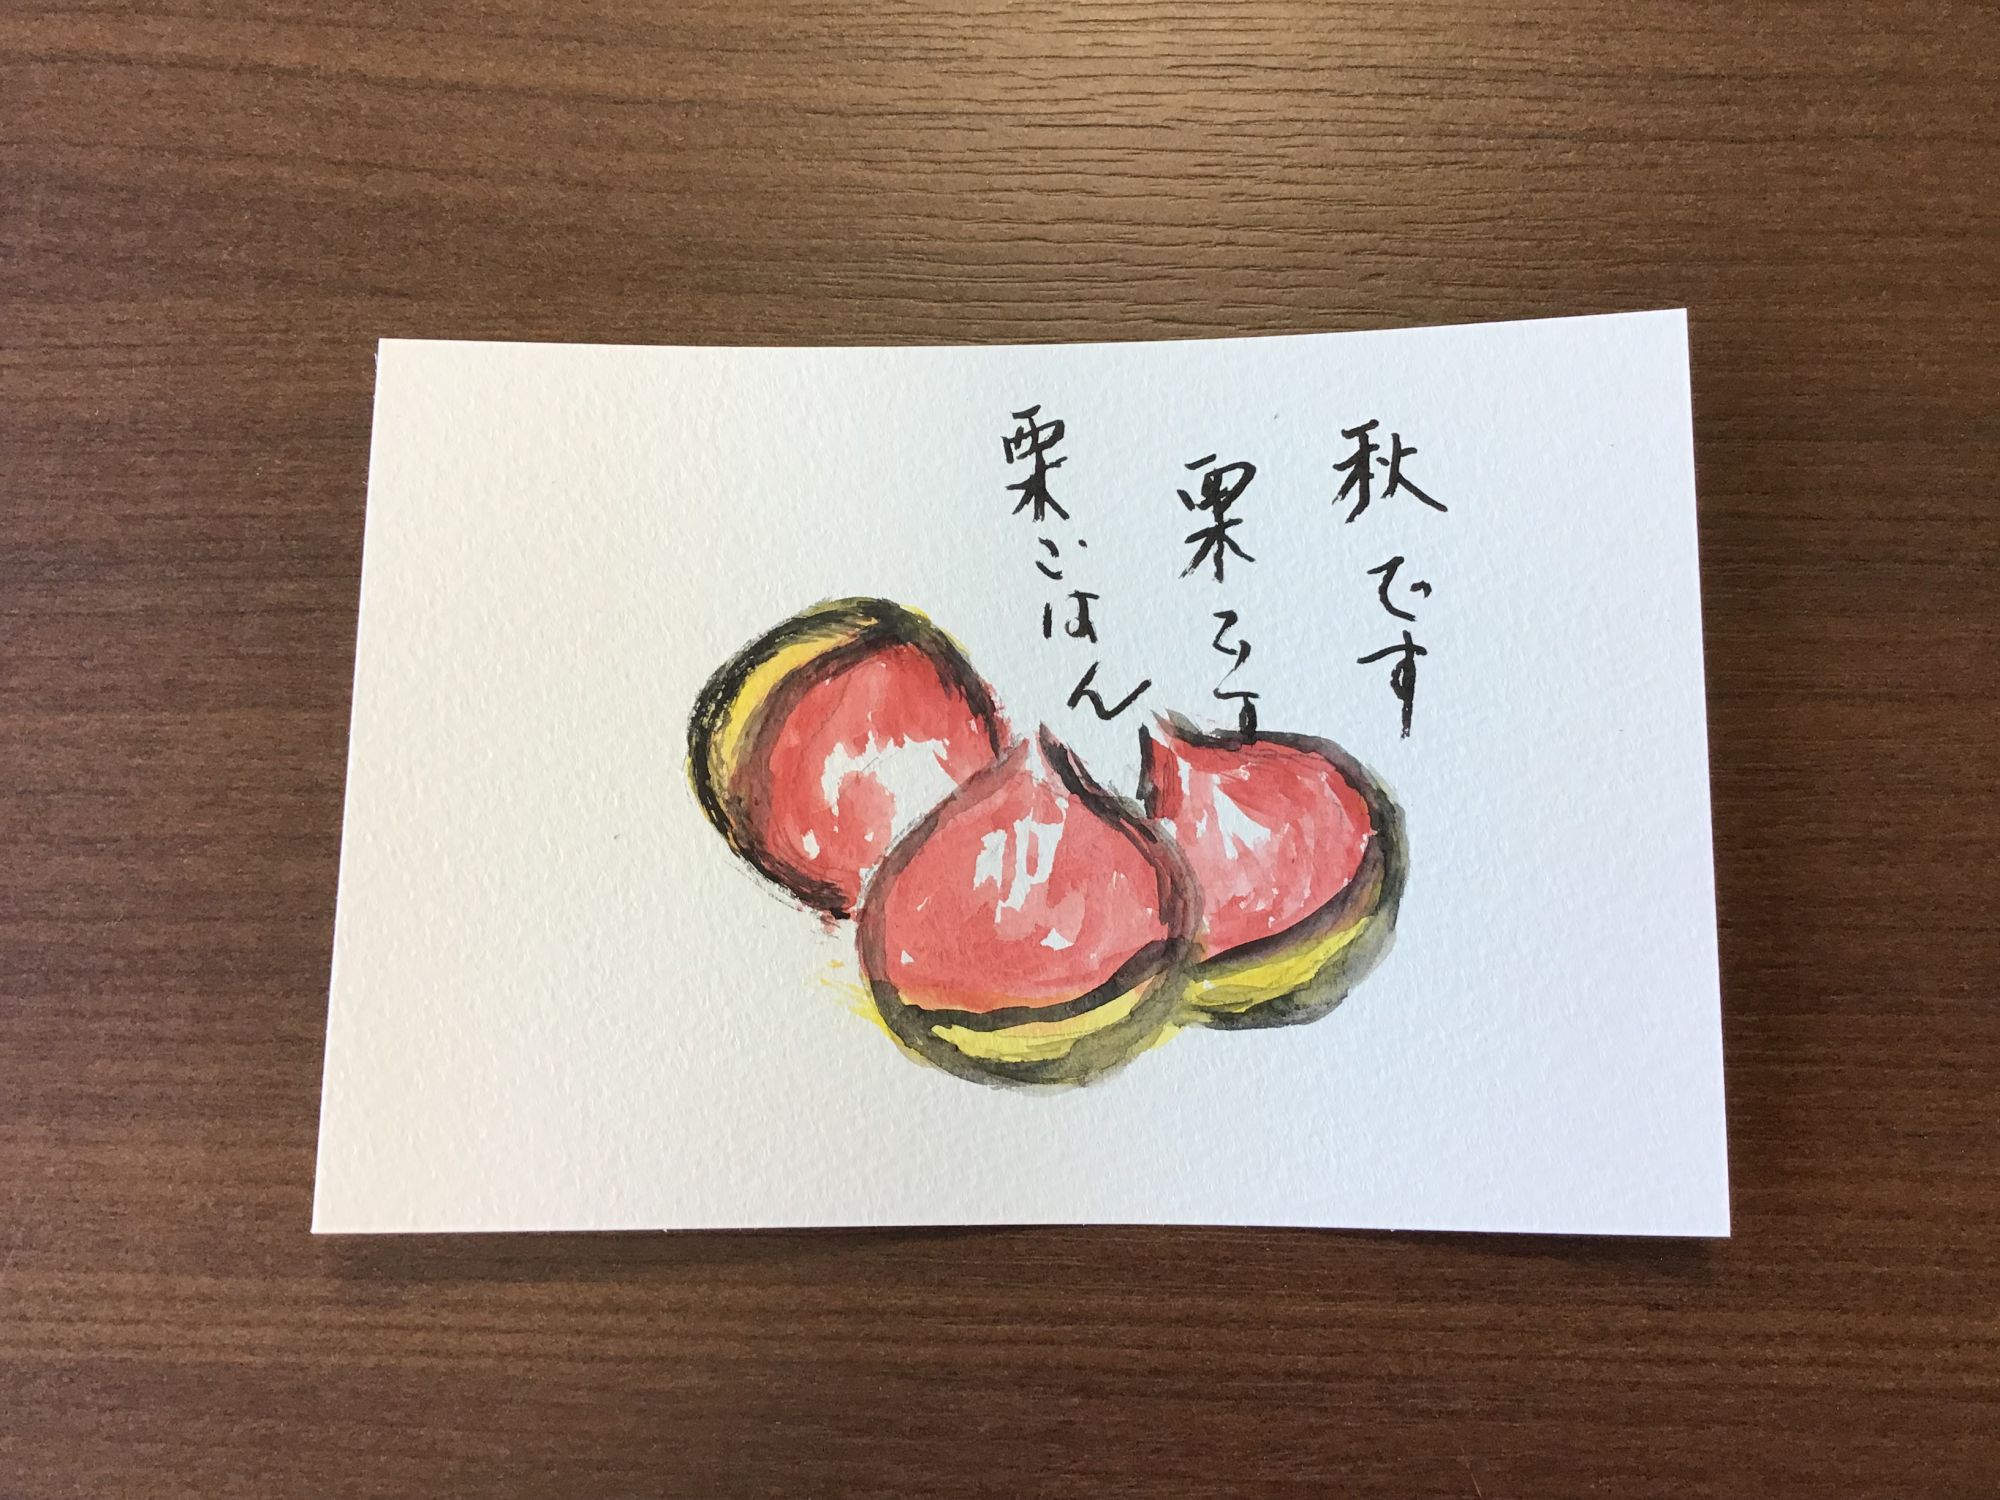 秋です
栗です
栗ごはん